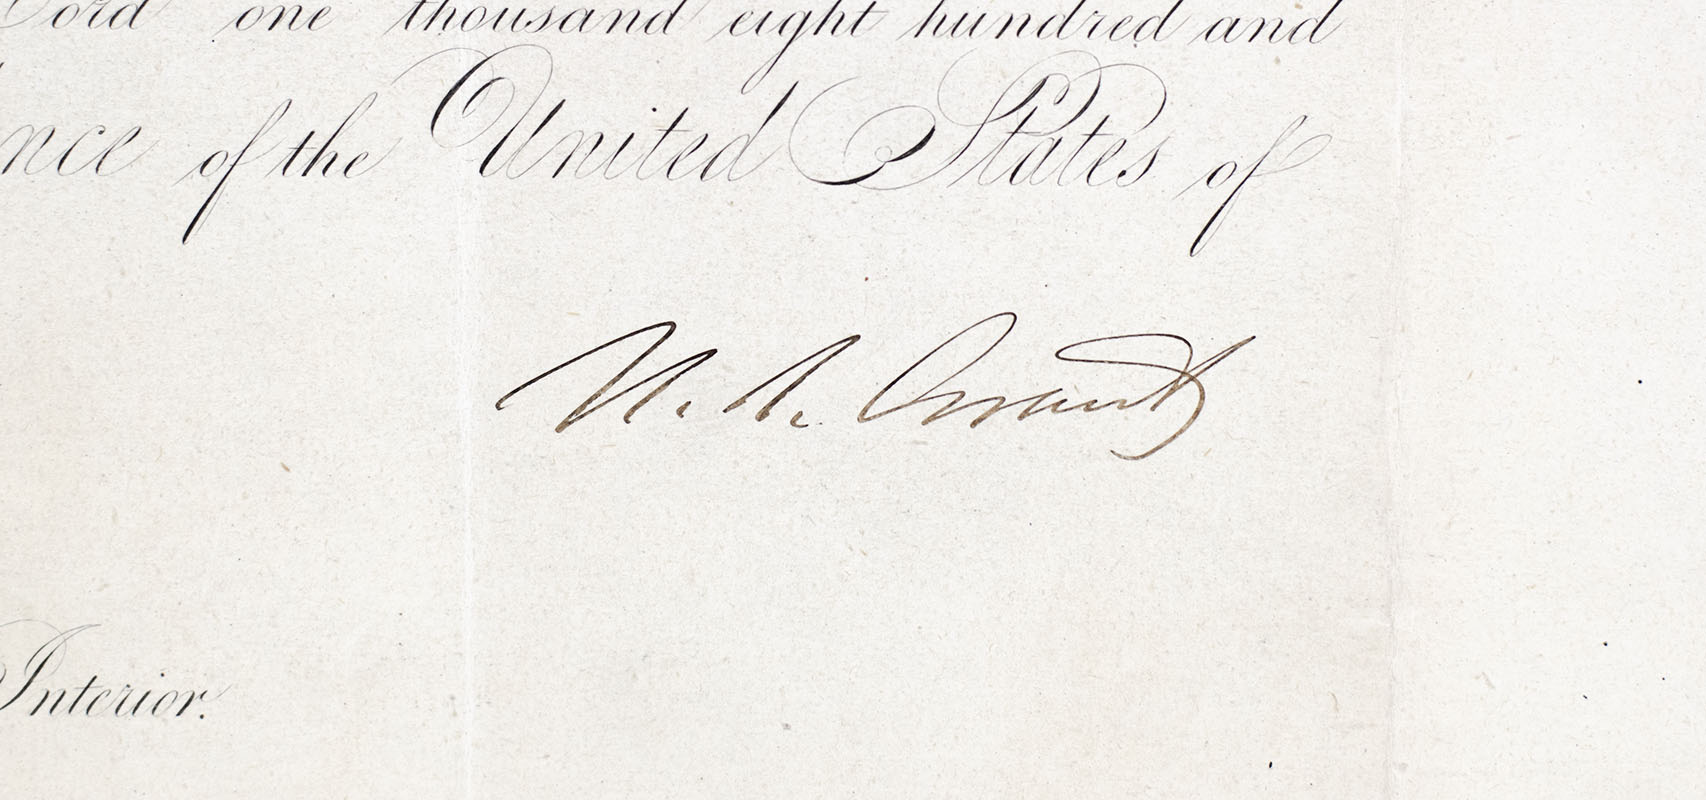 Lord one thousand eight hundred and
nce of the United States of
U. S. Grant
Interior.